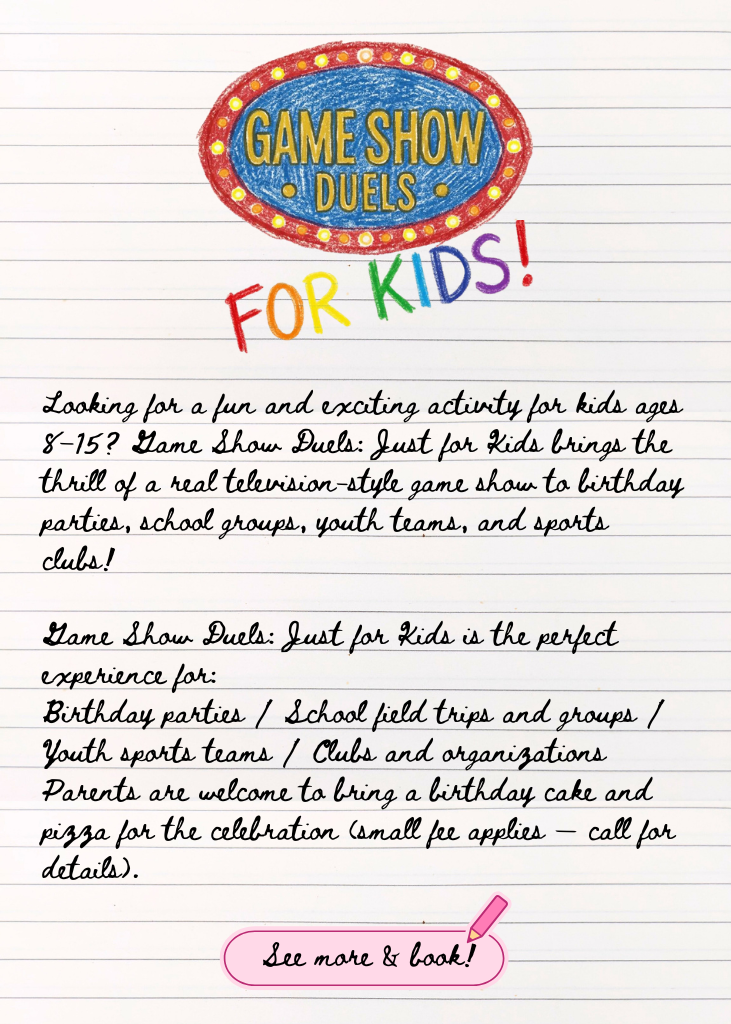 GAME SHOW
• DUELS •
FOR KIDS!
Looking for a fun and exciting activity for kids ages
8-15? Game Show Duels: Just for Kids brings the
thrill of a real television-style game show to birthday
parties, school groups, youth teams, and sports
clubs!
Game Show Duels: Just for Kids is the perfect
experience for:
Birthday parties / School field trips and groups /
Youth sports teams / Clubs and organizations
Parents are welcome to bring a birthday cake and
pizza for the celebration (small fee applies – call for
details).
See more & book!